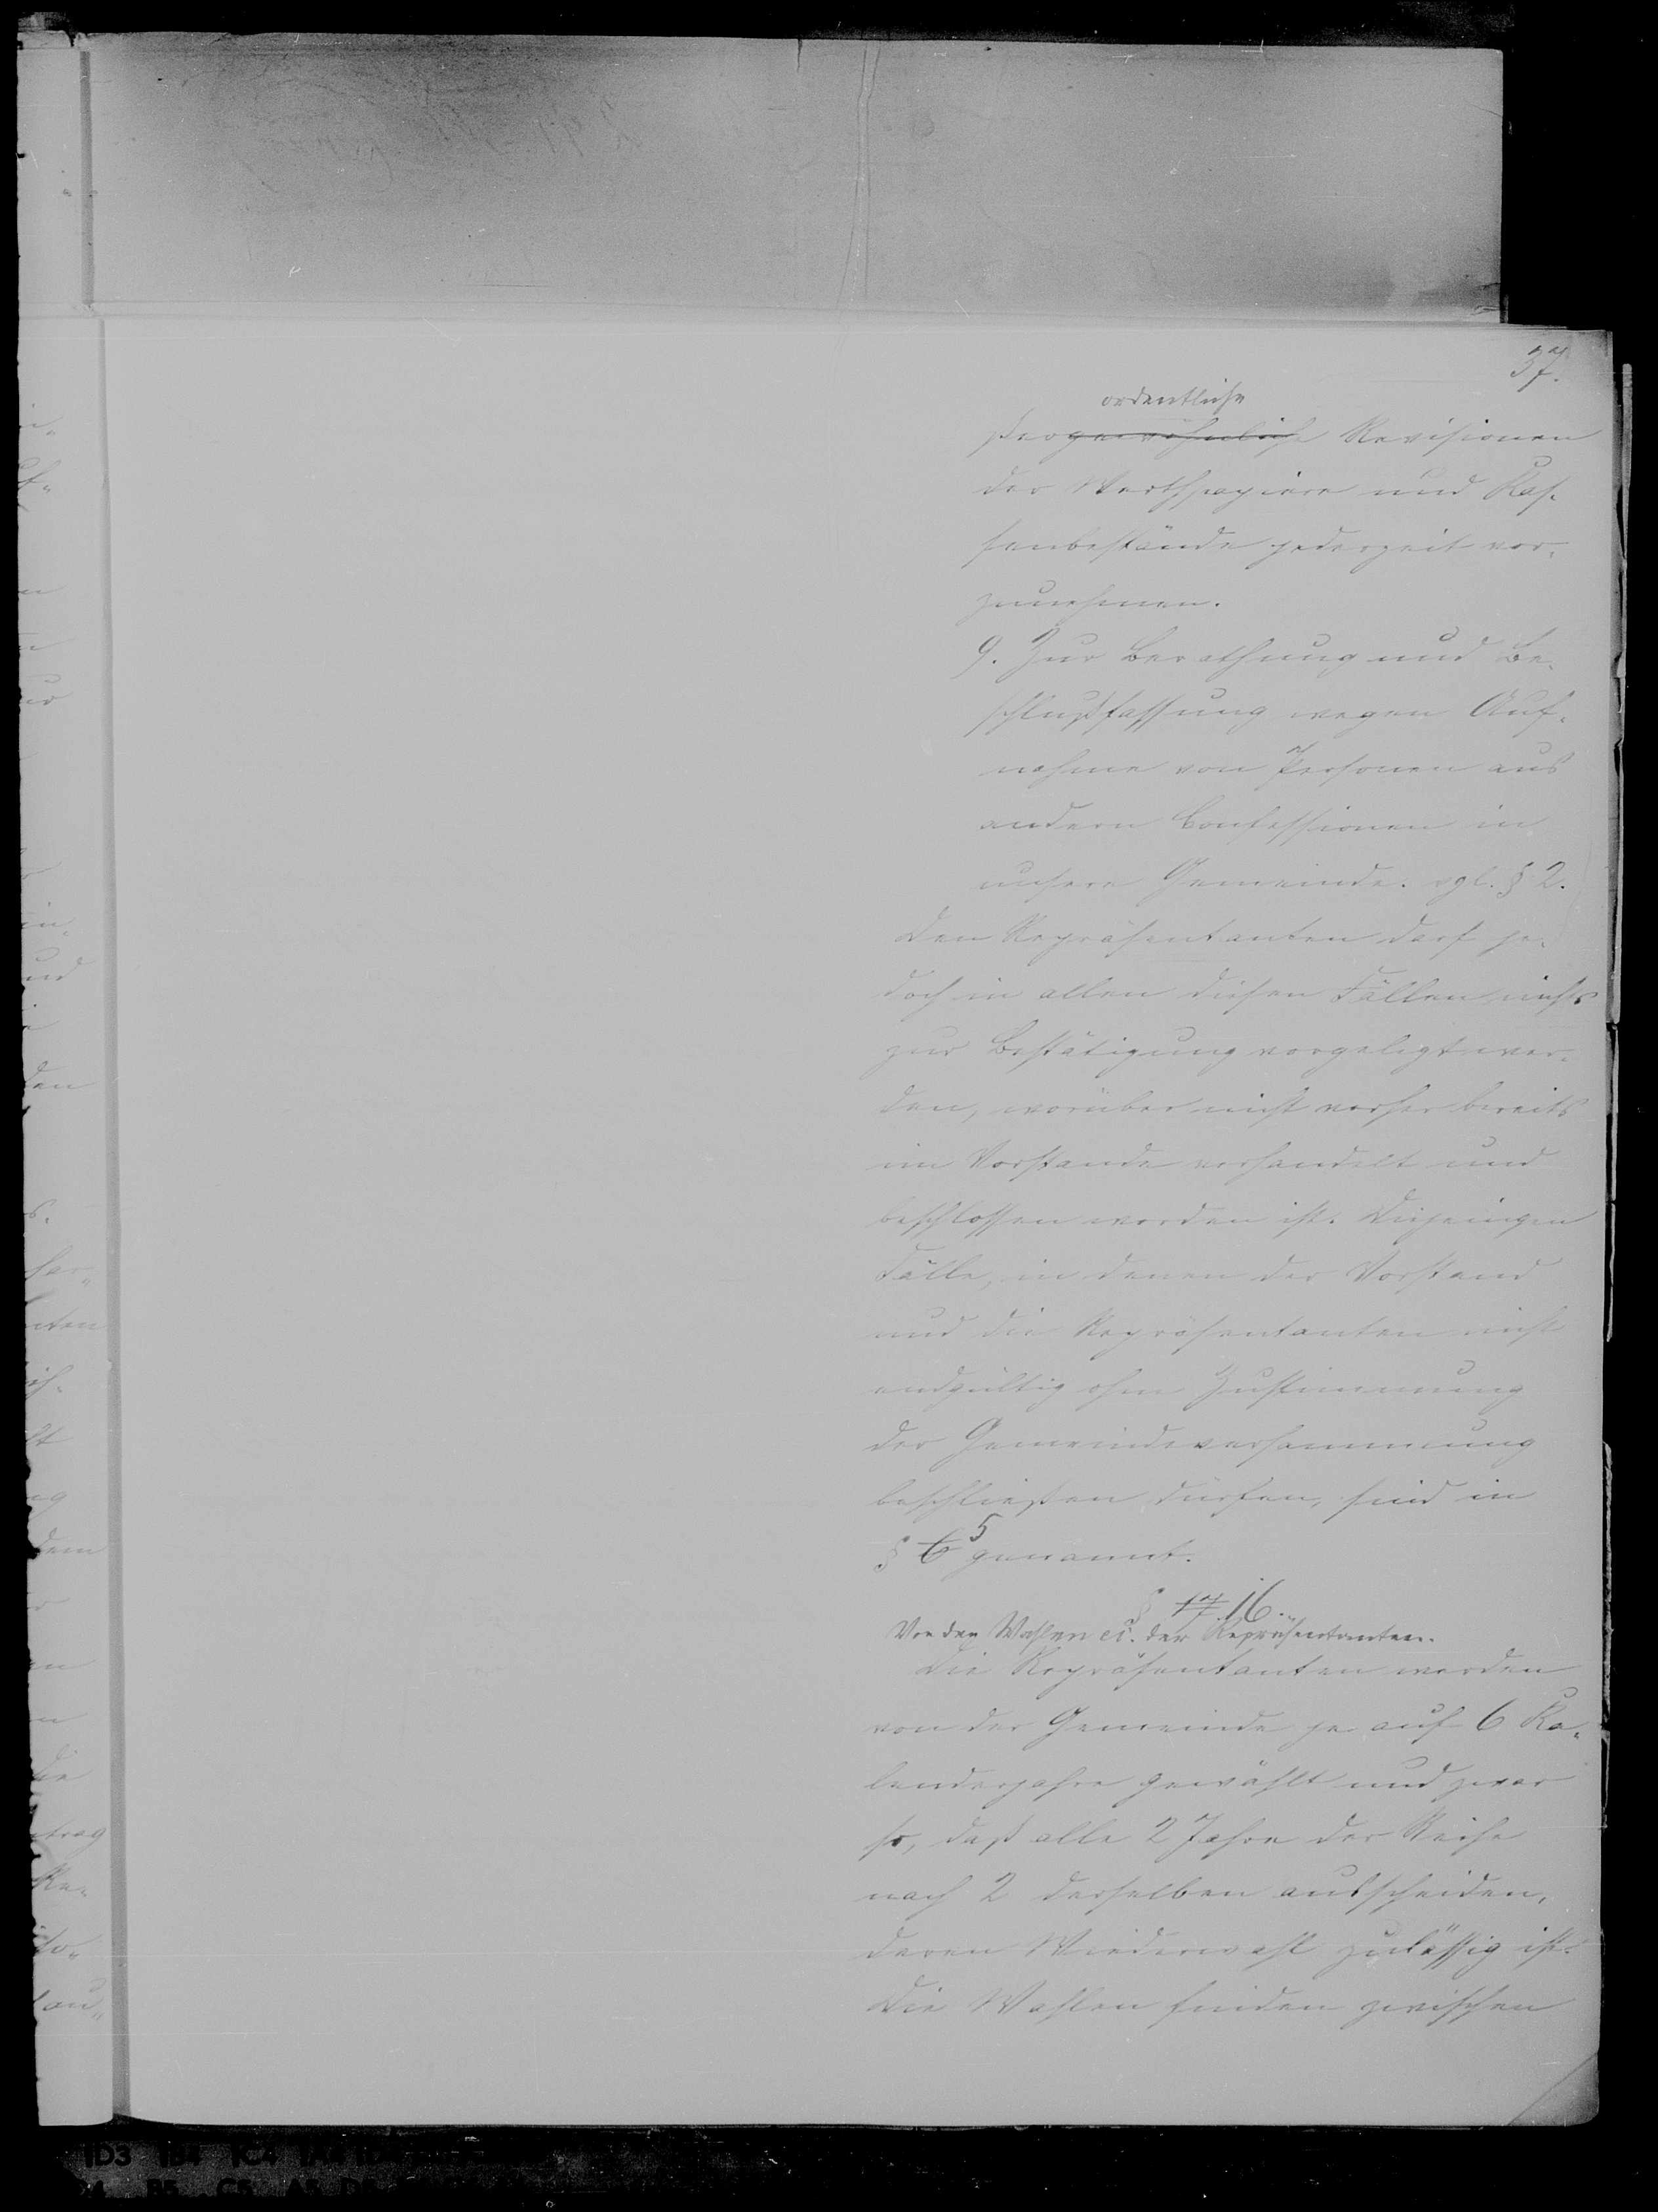 37.
ordentliche
ßergewöhnliche Revisionen
der Werthpapiere und Kas-
senbestände jederzeit vor-
zunehmen.
9. Zur Berathung und Be-
schlußfassung wegen Auf-
nahme von Personen aus
andern Confessionen in
unsere Gemeinde. vgl. § 2.
Den Repräsentanten darf je-
doch in allen diesen Fällen nichts
zur Bestätigung vorgelegt wer-
den, worüber nicht vorher bereits
im Vorstande verhandelt und
beschlossen worden ist. Diejenigen
Fälle, in denen der Vorstand
und die Repräsentanten nicht
endgültig ohne Zustimmung
der Gemeindeversammung
beschließen dürfen, sind in
§ 6 5 genannt.
§ 17 16.
Von den Wahlen der Repräsentanten.
Die Repräsentanten werden
von der Gemeinde je auf 6 Ka-
lenderjahre gewählt und zwar
so, daß alle 2 Jahre der Reihe
nach 2 derselben ausscheiden,
deren Wiederwahl zulässig ist.
Die Wahlen finden zwischen